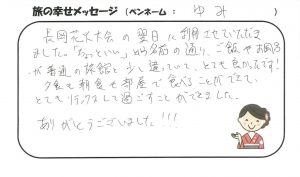 旅の幸せメッセージ (ペンネーム : ゆみ )
長岡花火大会の翌日に利用させていただき
ました。「ちょっといい」という名前の通り、ご飯やお風呂
が普通の旅館と少し違っていて、とても良かったです!
夕食も朝食も部屋で食べることができて、
とてもリラックスして過ごすことができました。
ありがとうございました!!!